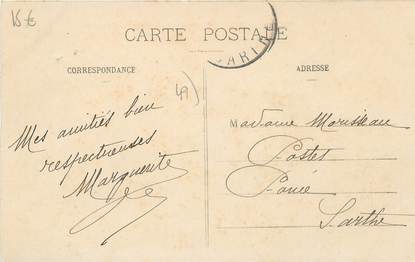 15 €
CARTE POSTALE
CORRESPONDANCE
ADRESSE
49)
Mes amitiés bien
respectueuses
Marguerite
Madame Morisseau
Postes
Poncé
Sarthe